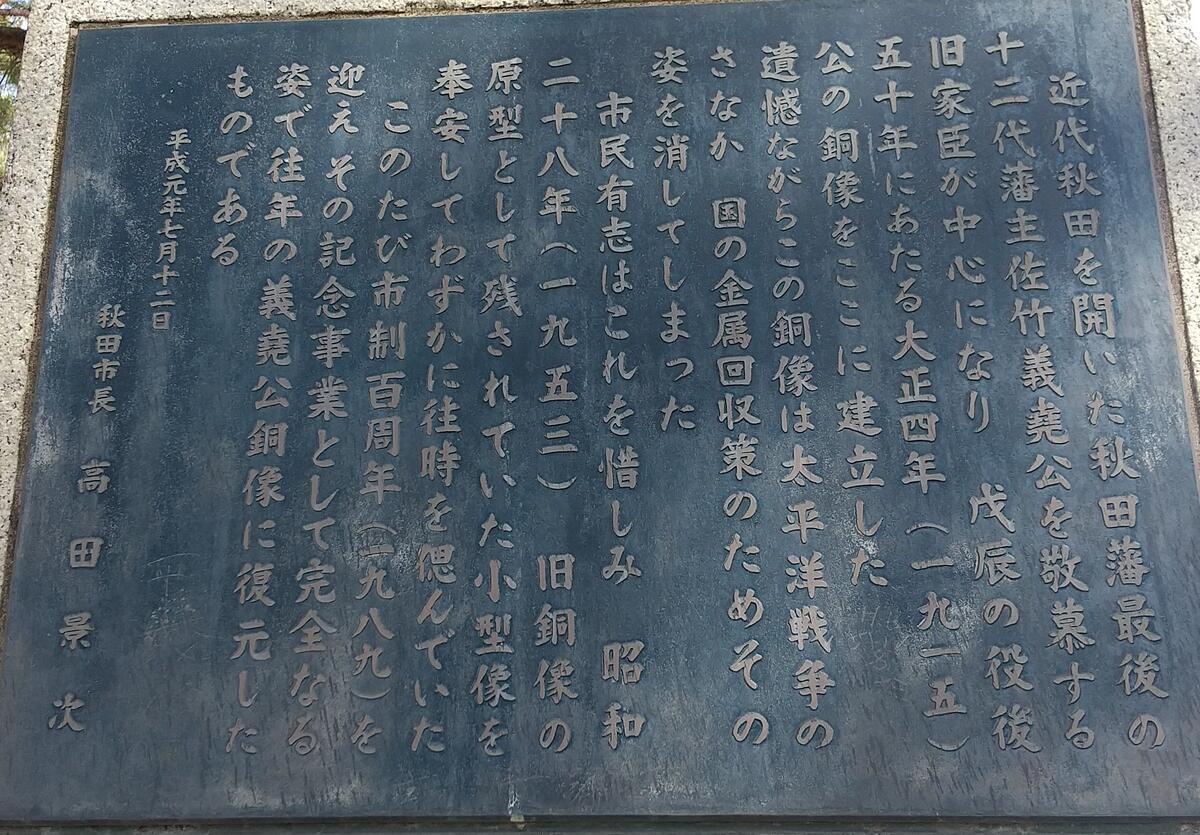 近代秋田を開いた秋田藩最後の
十二代藩主佐竹義堯公を敬慕する
旧家臣が中心になり 戊辰の役後
五十年にあたる大正四年(一九一五)
公の銅像をここに建立した
遺憾ながらこの銅像は太平洋戦争の
さなか 国の金属回収策のためその
姿を消してしまった
市民有志はこれを惜しみ 昭和
二十八年(一九五三) 旧銅像の
原型として残されていた小型像を
奉安してわずかに往時を偲んでいた
このたび市制百周年(一九八九)を
迎え その記念事業として完全なる
姿で往年の義堯公銅像に復元した
ものである
平成元年七月十二日
秋田市長 高田景次